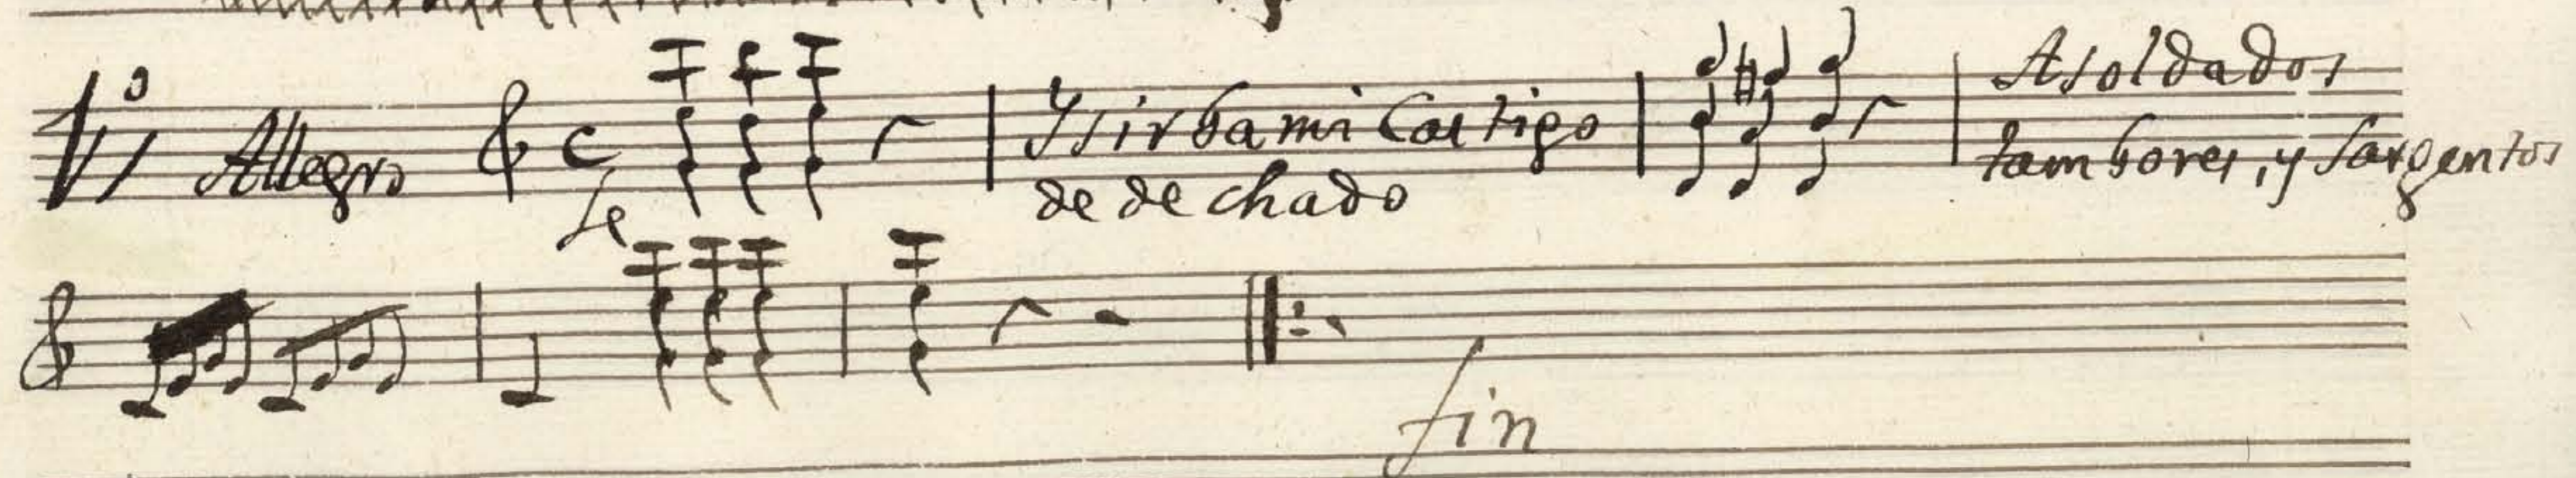 Vi Allegro
Y sirba mi Castigo
de dechado
A soldados
tambores, y Sargentos
fin